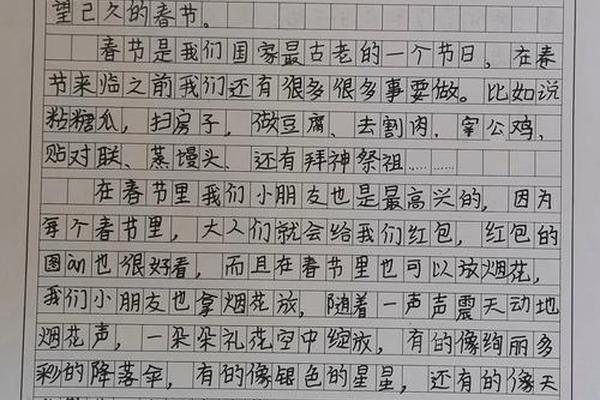 望已久的春节。
春节是我们国家最古老的一个节日，在春
节来临之前我们还有很多很多事要做。比如说
粘糖瓜，扫房子，做豆腐、去割肉、宰公鸡、
贴对联、蒸馒头、还有拜神祭祖……
在春节里我们小朋友也是最高兴的，因为
每个春节里，大人们就会给我们红包，红包的
图an也很好看，而且在春节里也可以放烟花，
我们小朋友也拿烟花放，随着一声声震天动地
烟花声，一朵朵礼花空中绽放，有的像绚丽多
彩的降落伞，有的像银色的星星，还有的像天